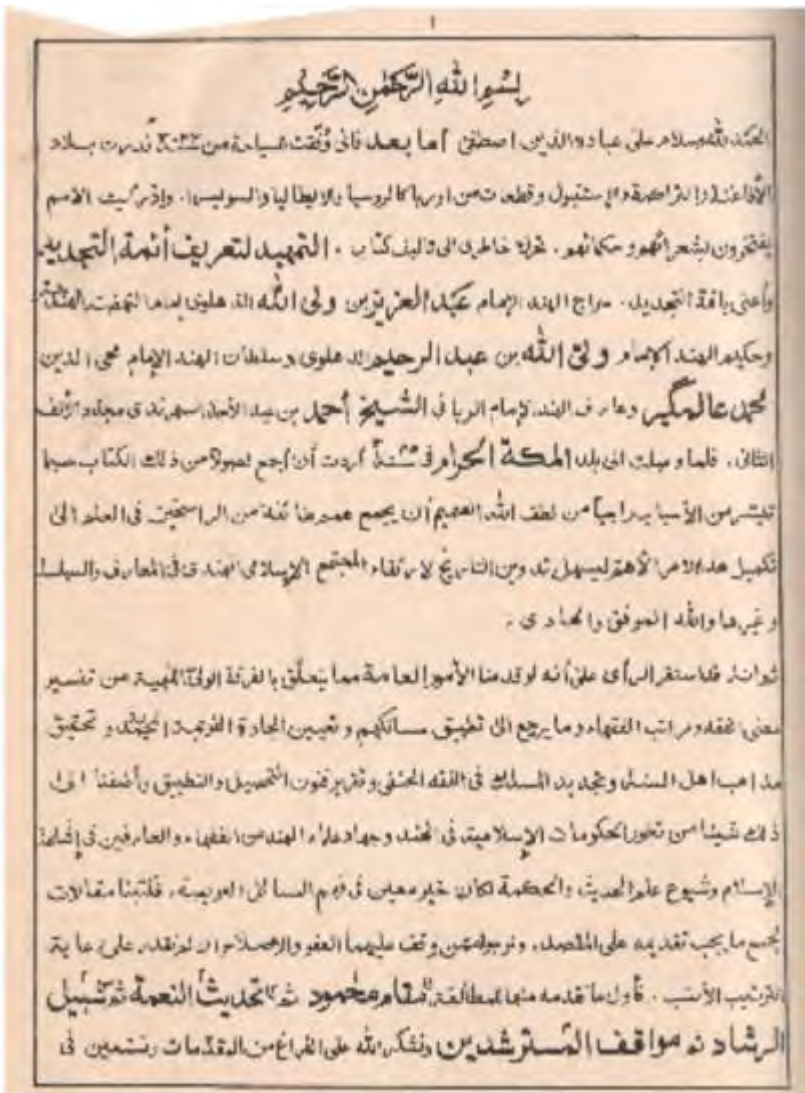 ١
بسم الله الرحمن الرحيم
الحمد لله وسلام على عباده الذين اصطفى أما بعد فانى وُفّقت لسياحة من قدرت بلاد
الأفاغنة والتراكمة والإستنبول وقطعات من اوربا كالروسيا والايطاليا والسويسرا. وإذ رأيت الامم
يفتخرون بشعرائهم وحكمائهم. تحرك خاطرى الى تاليف كتاب. التمهيد لتعريف أئمة التجديد
وأعنى بائمة التجديد. سراج الهند الإمام عبد العزيز بن ولى الله الدهلوى امام النهضة الهندية
وحكيم الهند الإمام ولى الله بن عبد الرحيم الدهلوى وسلطان الهند الإمام محى الدين
محمد عالمگير وعارف الهند الإمام الربانى الشيخ أحمد بن عبد الأحد السهرندى مجدد الألف
الثانى. فلما وصلت الى بلد المكة الحرام فى أردت أن أجمع فصولا من ذلك الكتاب حسبما
تيسر من الأسباب راجياً من لطف الله العميم أن يجمع من الراسخين فى العلم الى
تكميل هذا الامر الأهم ليسهل تدوين التاريخ لارتقاء المجتمع الإسلامى الهندى فى المعارف والسياسة
وغيرها والله الموفق والهادى.
ثم انه قد استقر الرأى على أنه لو قدمنا الأمور العامة مما يتعلق بالفرقة الولى اللهية من تفسير
معنى الفقه ومراتب الفقهاء وما يرجع الى تطبيق مسالكهم وتعيين الجادة القويمة و تحقيق
مذاهب اهل السنة وتجديد المسلك فى الفقه الحنفى وتقرير فنون التحصيل والتطبيق وأضفنا الى
ذلك شيئا من تطور الحكومات الإسلامية فى الهند وجهاد علماء الهند من الفقهاء والعارفين فى إشاعة
الإسلام وشيوع علم الحديث والحكمة لكان خير معين فى فهم المسائل العويصة. فكتبنا مقالات
تجمع ما يجب تقديمه على المقصد. ونرجو ممن وقف عليهما العفو والإصلاح ان لم نقدر على رعاية
الترتيب الأنسب. فأول ما نقدمه منها للمطالعة مقام محمود ثم تحديث النعمة ثم سبيل
الرشاد ثم مواقف المسترشدين ونشكر الله على الفراغ من المقدمات ونستعين فى